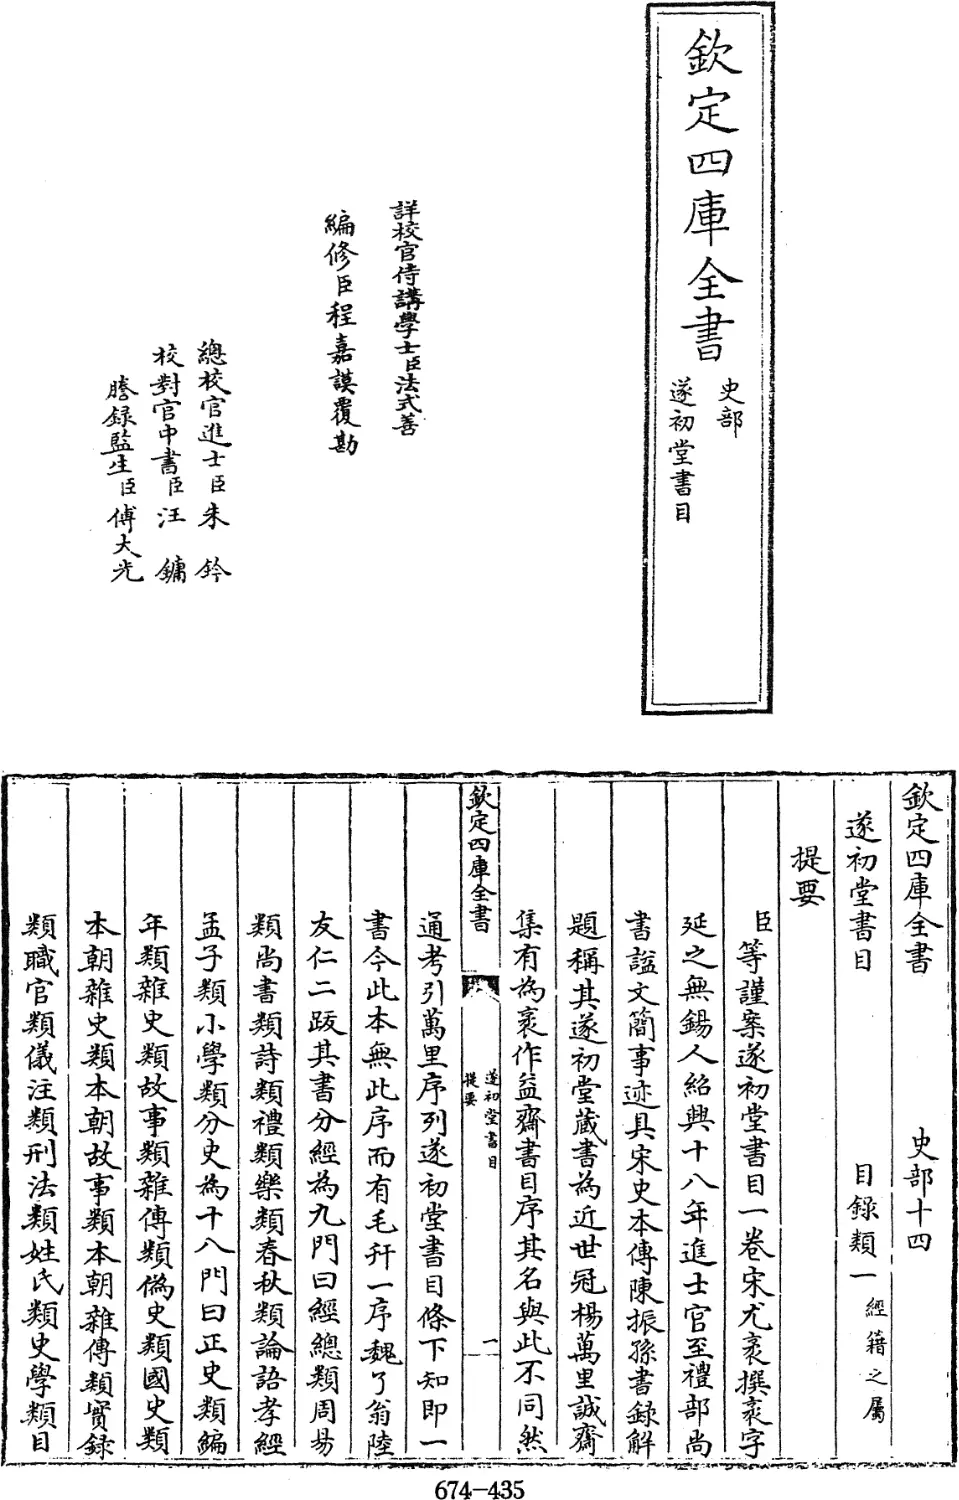 欽定四庫全書
史部
遂初堂書目
詳校官侍講學士臣法式善
編修臣程嘉謨覆勘
總校官進士臣朱鈐
校對官中書臣汪鏞
謄錄監生臣傅大光
欽定四庫全書 史部十四
遂初堂書目 目錄類一經籍之屬
提要
臣等謹案遂初堂書目一卷宋尤袤撰袤字
延之無錫人紹興十八年進士官至禮部尚
書諡文簡事迹具宋史本傳陳振孫書錄解
題稱其遂初堂藏書為近世冠楊萬里誠齋
集有為袤作益齋書目序其名與此不同然
欽定四庫全書 遂初堂書目 提要 一
通考引萬里序列遂初堂書目條下知即一
書今此本無此序而有毛幵一序魏了翁陸
友仁二跋其書分經為九門曰經總類周易
類尚書類詩類禮類樂類春秋類論語孝經
孟子類小學類分史為十八門曰正史類編
年類雜史類故事類雜傳類偽史類國史類
本朝雜史類本朝故事類本朝雜傳類實錄
類職官類儀注類刑法類姓氏類史學類目
674-435